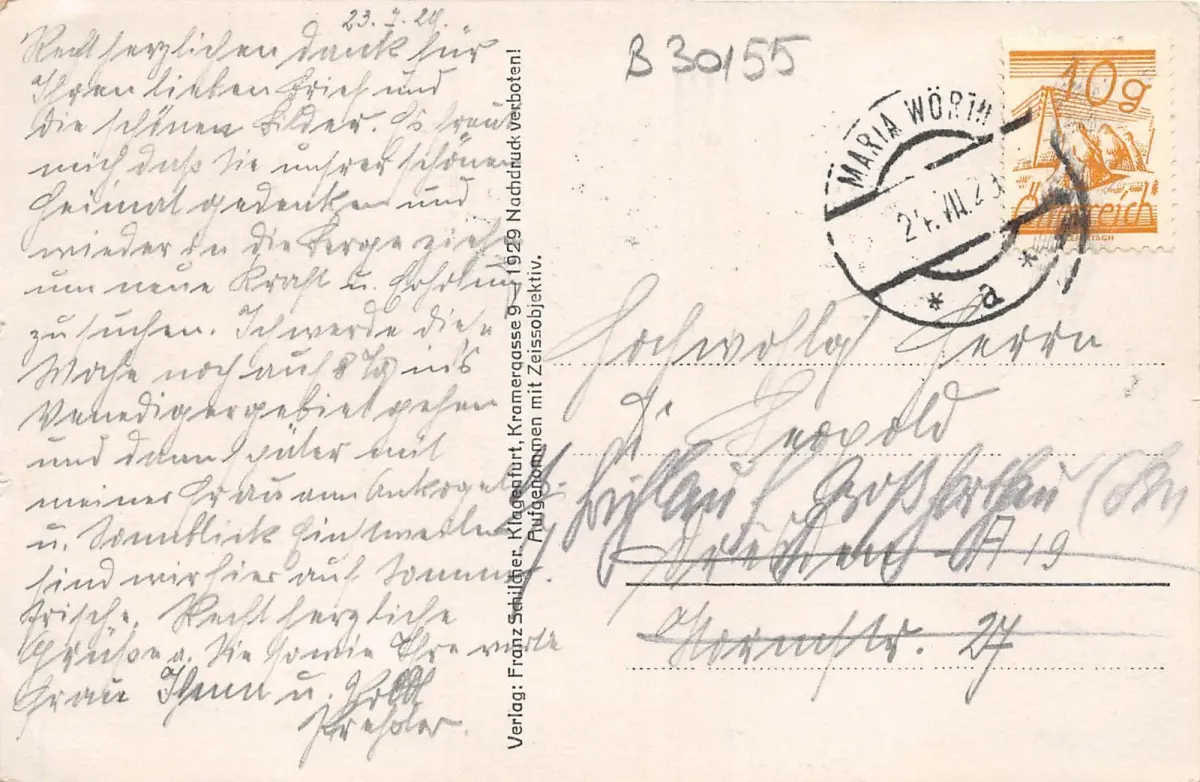 23. 7. 29.
Recht herzlichen Dank für
Ihren lieben Brief und
die schönen Bilder. Es freut
mich daß Sie unsrer schönen
Heimat gedenken und
wieder in die Berge ziehen
um neue Kraft u. Erholung
zu suchen. Ich werde diese
Woche noch auf 8 Tg ins
Venedigergebiet gehen
und dann später mit
meiner Frau am Ankogel
u. Sonnblick Einstweilen
sind wir hier auf Sommer-
frische. Recht herzliche
Grüße a. Sie sowie Ihre werte
Frau Ihnen u.
Verlag: Franz Schilcher, Klagenfurt, Kramergasse 9 — 1929 Nachdruck verboten!
Aufgenommen mit Zeissobjektiv.
B 30/55
10g
Österreich
MARIA WÖRTH
24. VII. 29
* a *
Hochwohlg Herrn
Leopold
Großharthau
Dresden A 19
27